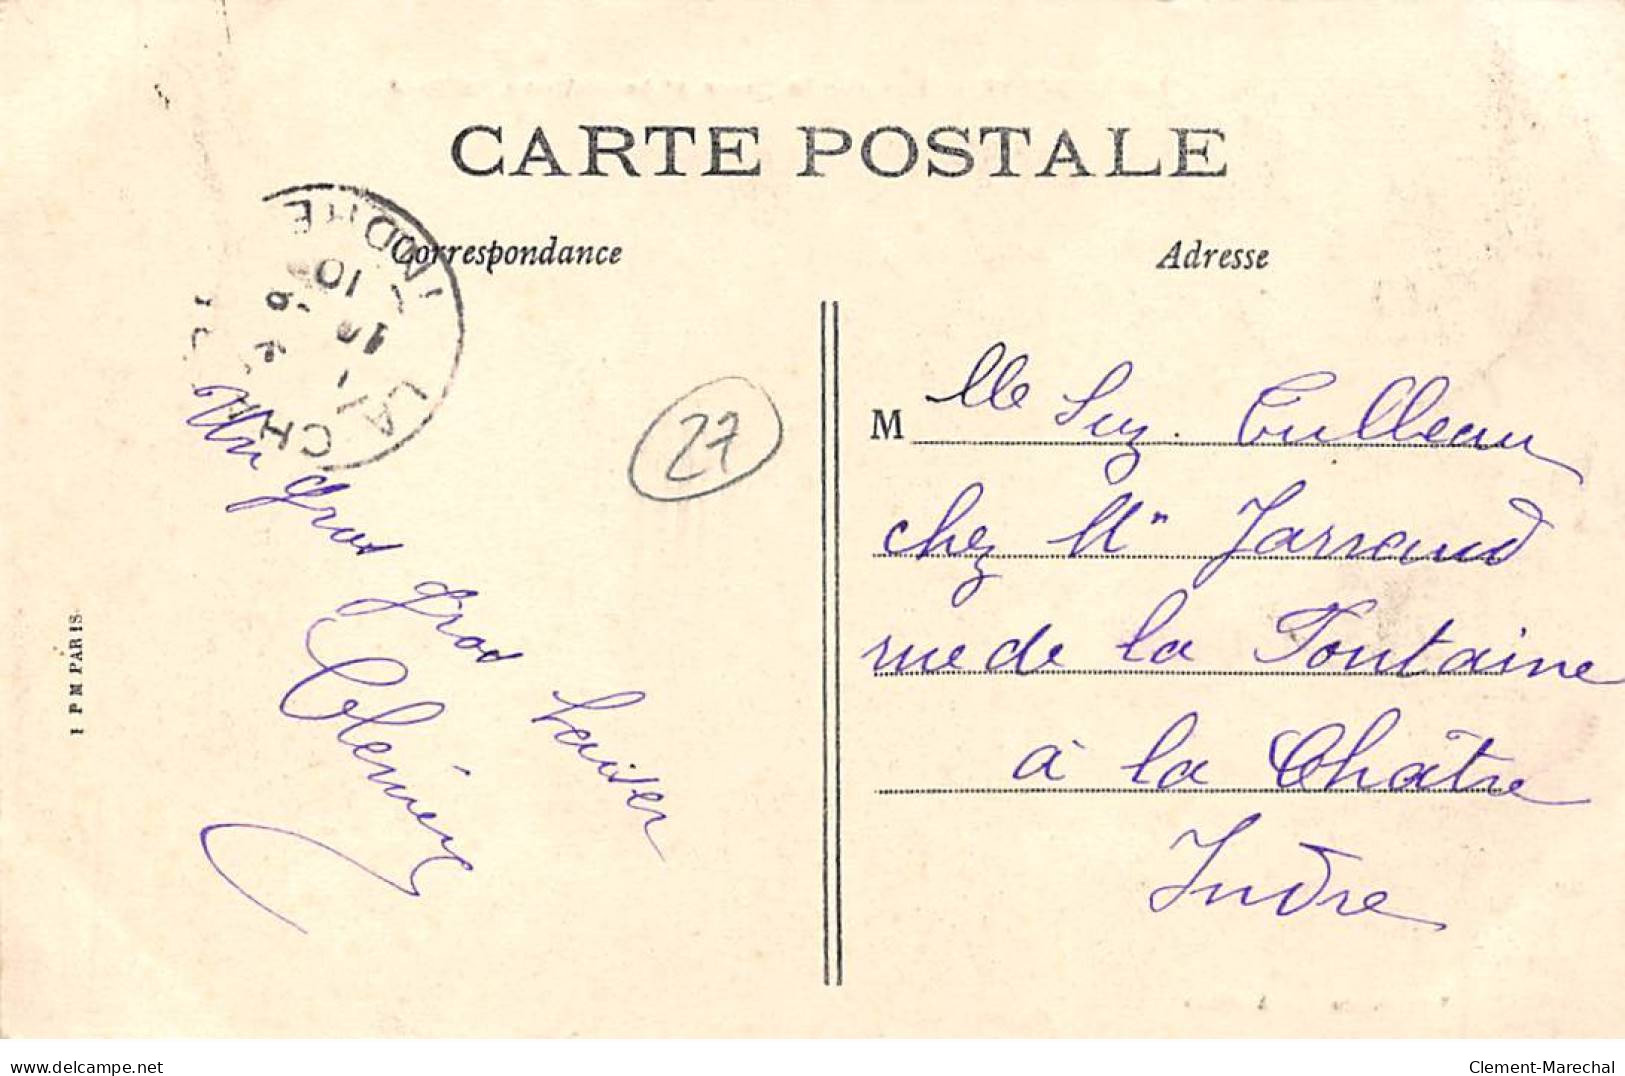 CARTE POSTALE
Correspondance
Adresse
LA CHA
INDRE
10
27
Un gros
gros
baiser
M lle Suz. Tulleau
chez Mm Jarraud
rue de la Fontaine
à la Châtre
Indre
I P M PARIS
delcampe.net
Clement-Marechal